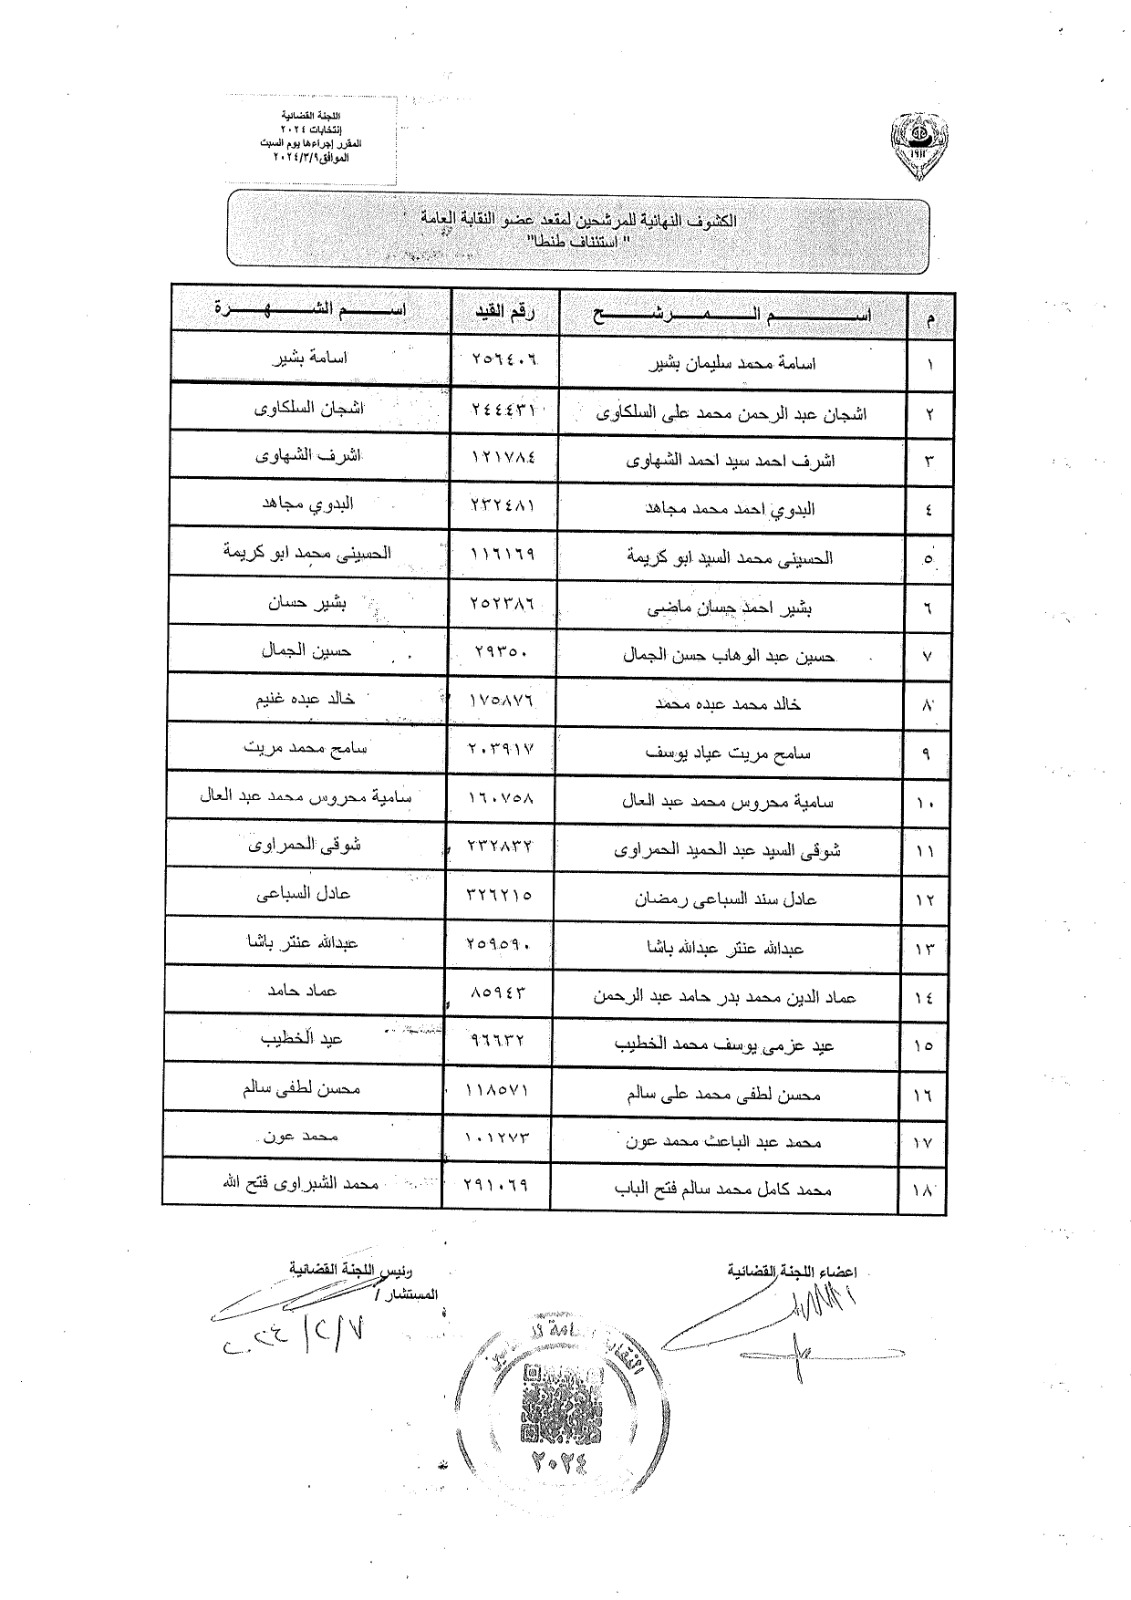 اللجنة القضائية
إنتخابات ٢٠٢٤
المقرر إجراءها يوم السبت
الموافق٢٠٢٤/٣/٩
١٩١٢
الكشوف النهائية للمرشحين لمقعد عضو النقابة العامة
" استئناف طنطا"
م اســـم المـــرشـــح رقم القيد اســـم الشـــهـــرة
١ اسامة محمد سليمان بشير ٢٥٦٤٠٦ اسامة بشير
٢ اشجان عبد الرحمن محمد على السلكاوى ٢٤٤٤٣١ اشجان السلكاوى
٣ اشرف احمد سيد احمد الشهاوى ١٢١٧٨٤ اشرف الشهاوى
٤ البدوي احمد محمد مجاهد ٢٣٢٤٨١ البدوي مجاهد
٥ الحسينى محمد السيد ابو كريمة ١١٦١٦٩ الحسينى محمد ابو كريمة
٦ بشير احمد حسان ماضى ٢٥٢٣٨٦ بشير حسان
٧ حسين عبد الوهاب حسن الجمال ٢٩٣٥٠ حسين الجمال
٨ خالد محمد عبده محمد ١٧٥٨٧٦ خالد عبده غنيم
٩ سامح مريت عياد يوسف ٢٠٣٩١٧ سامح محمد مريت
١٠ سامية محروس محمد عبد العال ١٦٠٧٥٨ سامية محروس محمد عبد العال
١١ شوقى السيد عبد الحميد الحمراوى ٢٣٢٨٣٢ شوقى الحمراوى
١٢ عادل سند السباعى رمضان ٣٢٦٢١٥ عادل السباعى
١٣ عبدالله عنتر عبدالله باشا ٢٥٩٥٩٠ عبدالله عنتر باشا
١٤ عماد الدين محمد بدر حامد عبد الرحمن ٨٥٩٤٣ عماد حامد
١٥ عيد عزمى يوسف محمد الخطيب ٩٦٦٣٢ عيد الخطيب
١٦ محسن لطفى محمد على سالم ١١٨٥٧١ محسن لطفى سالم
١٧ محمد عبد الباعث محمد عون ١٠١٢٧٣ محمد عون
١٨ محمد كامل محمد سالم فتح الباب ٢٩١٠٦٩ محمد الشبراوى فتح الله
اعضاء اللجنة القضائية
رئيس اللجنة القضائية
المستشار /
٢٠٢٤/٢/٧
٢٠٢٤